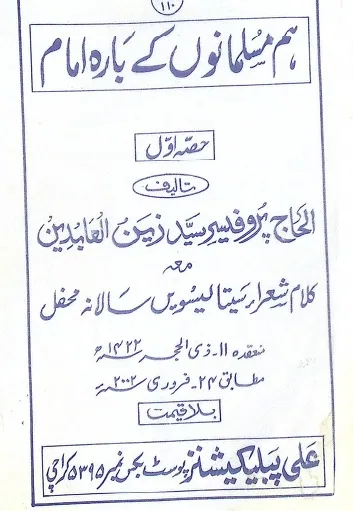 ۱۱۰
ہم مسلمانوں کے بارہ امام
حصہ اوّل
تالیف
الحاج پروفیسر سیّد زین العابدین
معہ
کلام شعراء سینتالیسویں سالانہ محفل
منعقدہ ۱۱- ذی الحجہ ۱۴۲۲ھ
مطابق ۲۴- فروری ۲۰۰۲ء
بلا قیمت
علی پبلیکیشنز پوسٹ بکس نمبر ۵۳۹۵ کراچی